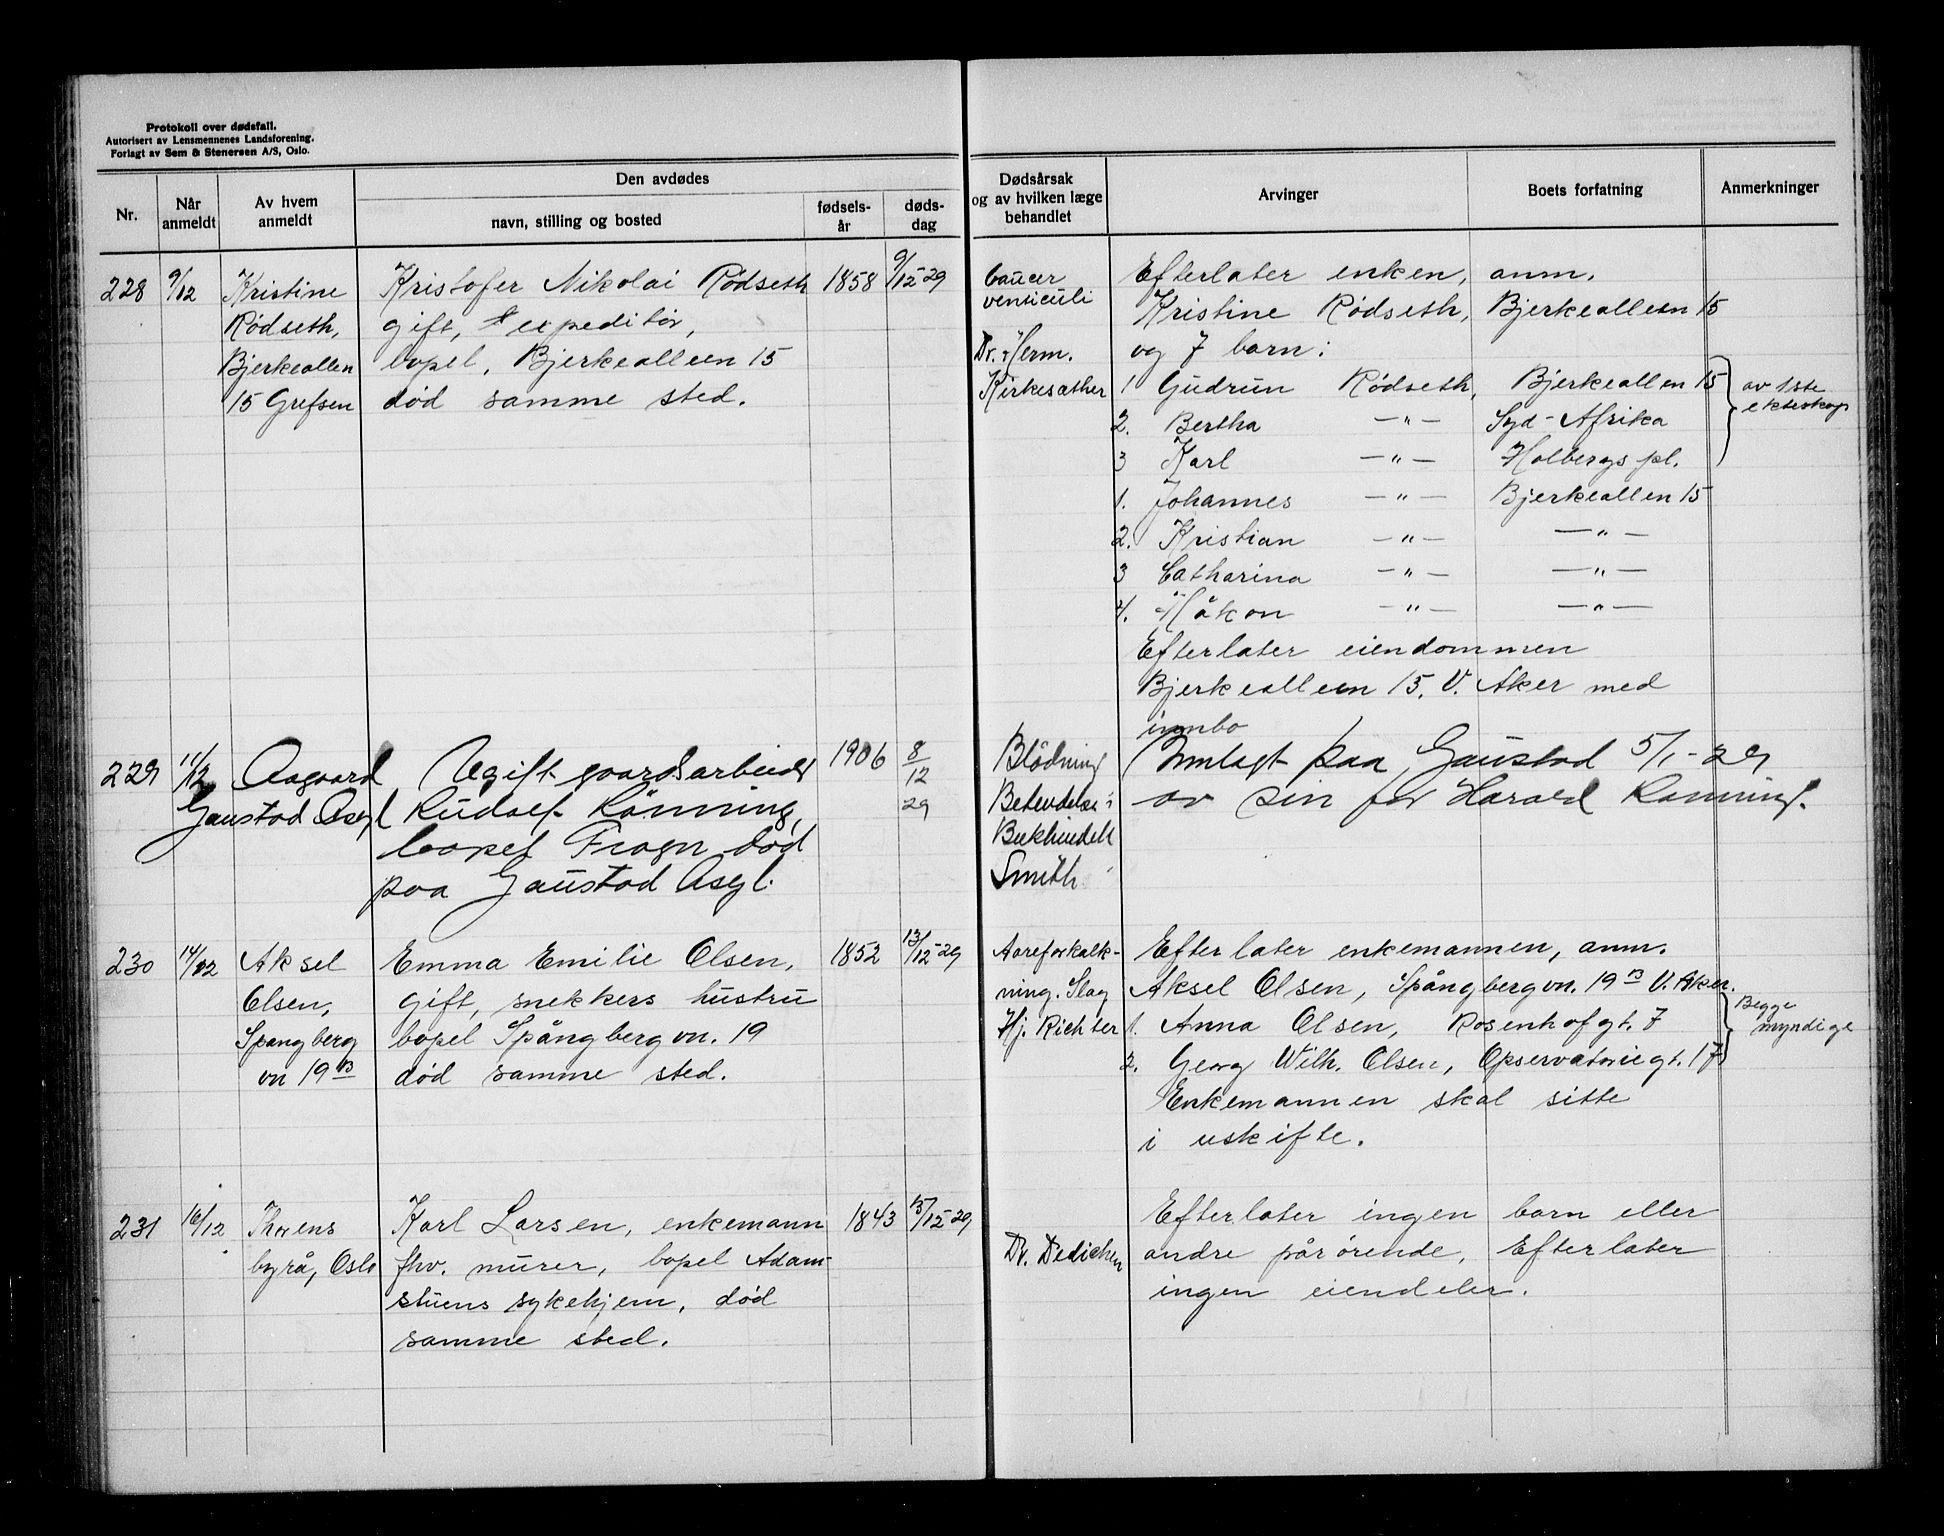 Protokoll over dødsfall.
Autorisert av Lensmennenes Landsforening.
Forlagt av Sem & Stenersen A/S, Oslo.
Nr.
Når anmeldt
Av hvem anmeldt
Den avdødes
navn, stilling og bosted
fødsels-år
døds-dag
Dødsårsak
og av hvilken læge
behandlet
Arvinger
Boets forfatning
Anmerkninger
228 9/12 Kristine Kristofer Nikolai Rødseth 1858 9/12-29
Rødseth, gift, expeditør,
Bjerkeallen bopel, Bjerkealleen 15
15 Grefsen død samme sted.
Cancer
ventriculi
Dr. Herm.
Kirkesæther
Efterlater enken, anm.
Kristine Rødseth, Bjerkealleen 15
og 7 barn:
1 Gudrun Rødseth, Bjerkeallen 15
2. Bertha —"— Syd-Afrika
3 Karl —"— Holbergs pl.
av 1ste
ekteskap
1. Johannes —"— Bjerkeallen 15
2. Kristian —"— —"—
3 Catharina —"— —"—
4. Håkon —"— —"—
Efterlater eiendommen
Bjerkealleen 15. V. Aker med
innbo
229 11/12 Aagaard Ugift gaardsarbeider 1906 8/12 29
Gaustad Asyl Rudolf Rönning,
bopel Frogn død
paa Gaustad Asyl.
Blödning
Betendelse i
Bukhinden
Smith
Innlagt paa Gaustad 5/1-29
av sin far Harald Rönning.
230 14/12 Aksel Emma Emilie Olsen, 1852 13/12-29
Olsen, gift, snekkers hustru
Spangberg bopel Spångbergvn. 19
vn 19 B død samme sted.
Aareforkalk-
ning. Slag
Hj. Richter
Efterlater enkemannen, anm.
Aksel Olsen, Spångbergvn. 19 B V. Aker.
1. Anna Olsen, Rosenhofgt. 7
2. Georg Wilh. Olsen, Opservatoriegt. 17
Begge
myndige
Enkemannen skal sitte
i uskifte.
231 16/12 Thorens Karl Larsen, enkemann 1843 15/12-29
byrå, Oslo fhv. murer, bopel Adam-
stuens sykehjem, død
samme sted.
Dr. Dedichen
Efterlater ingen barn eller
andre pårørende, Efterlater
ingen eiendeler.